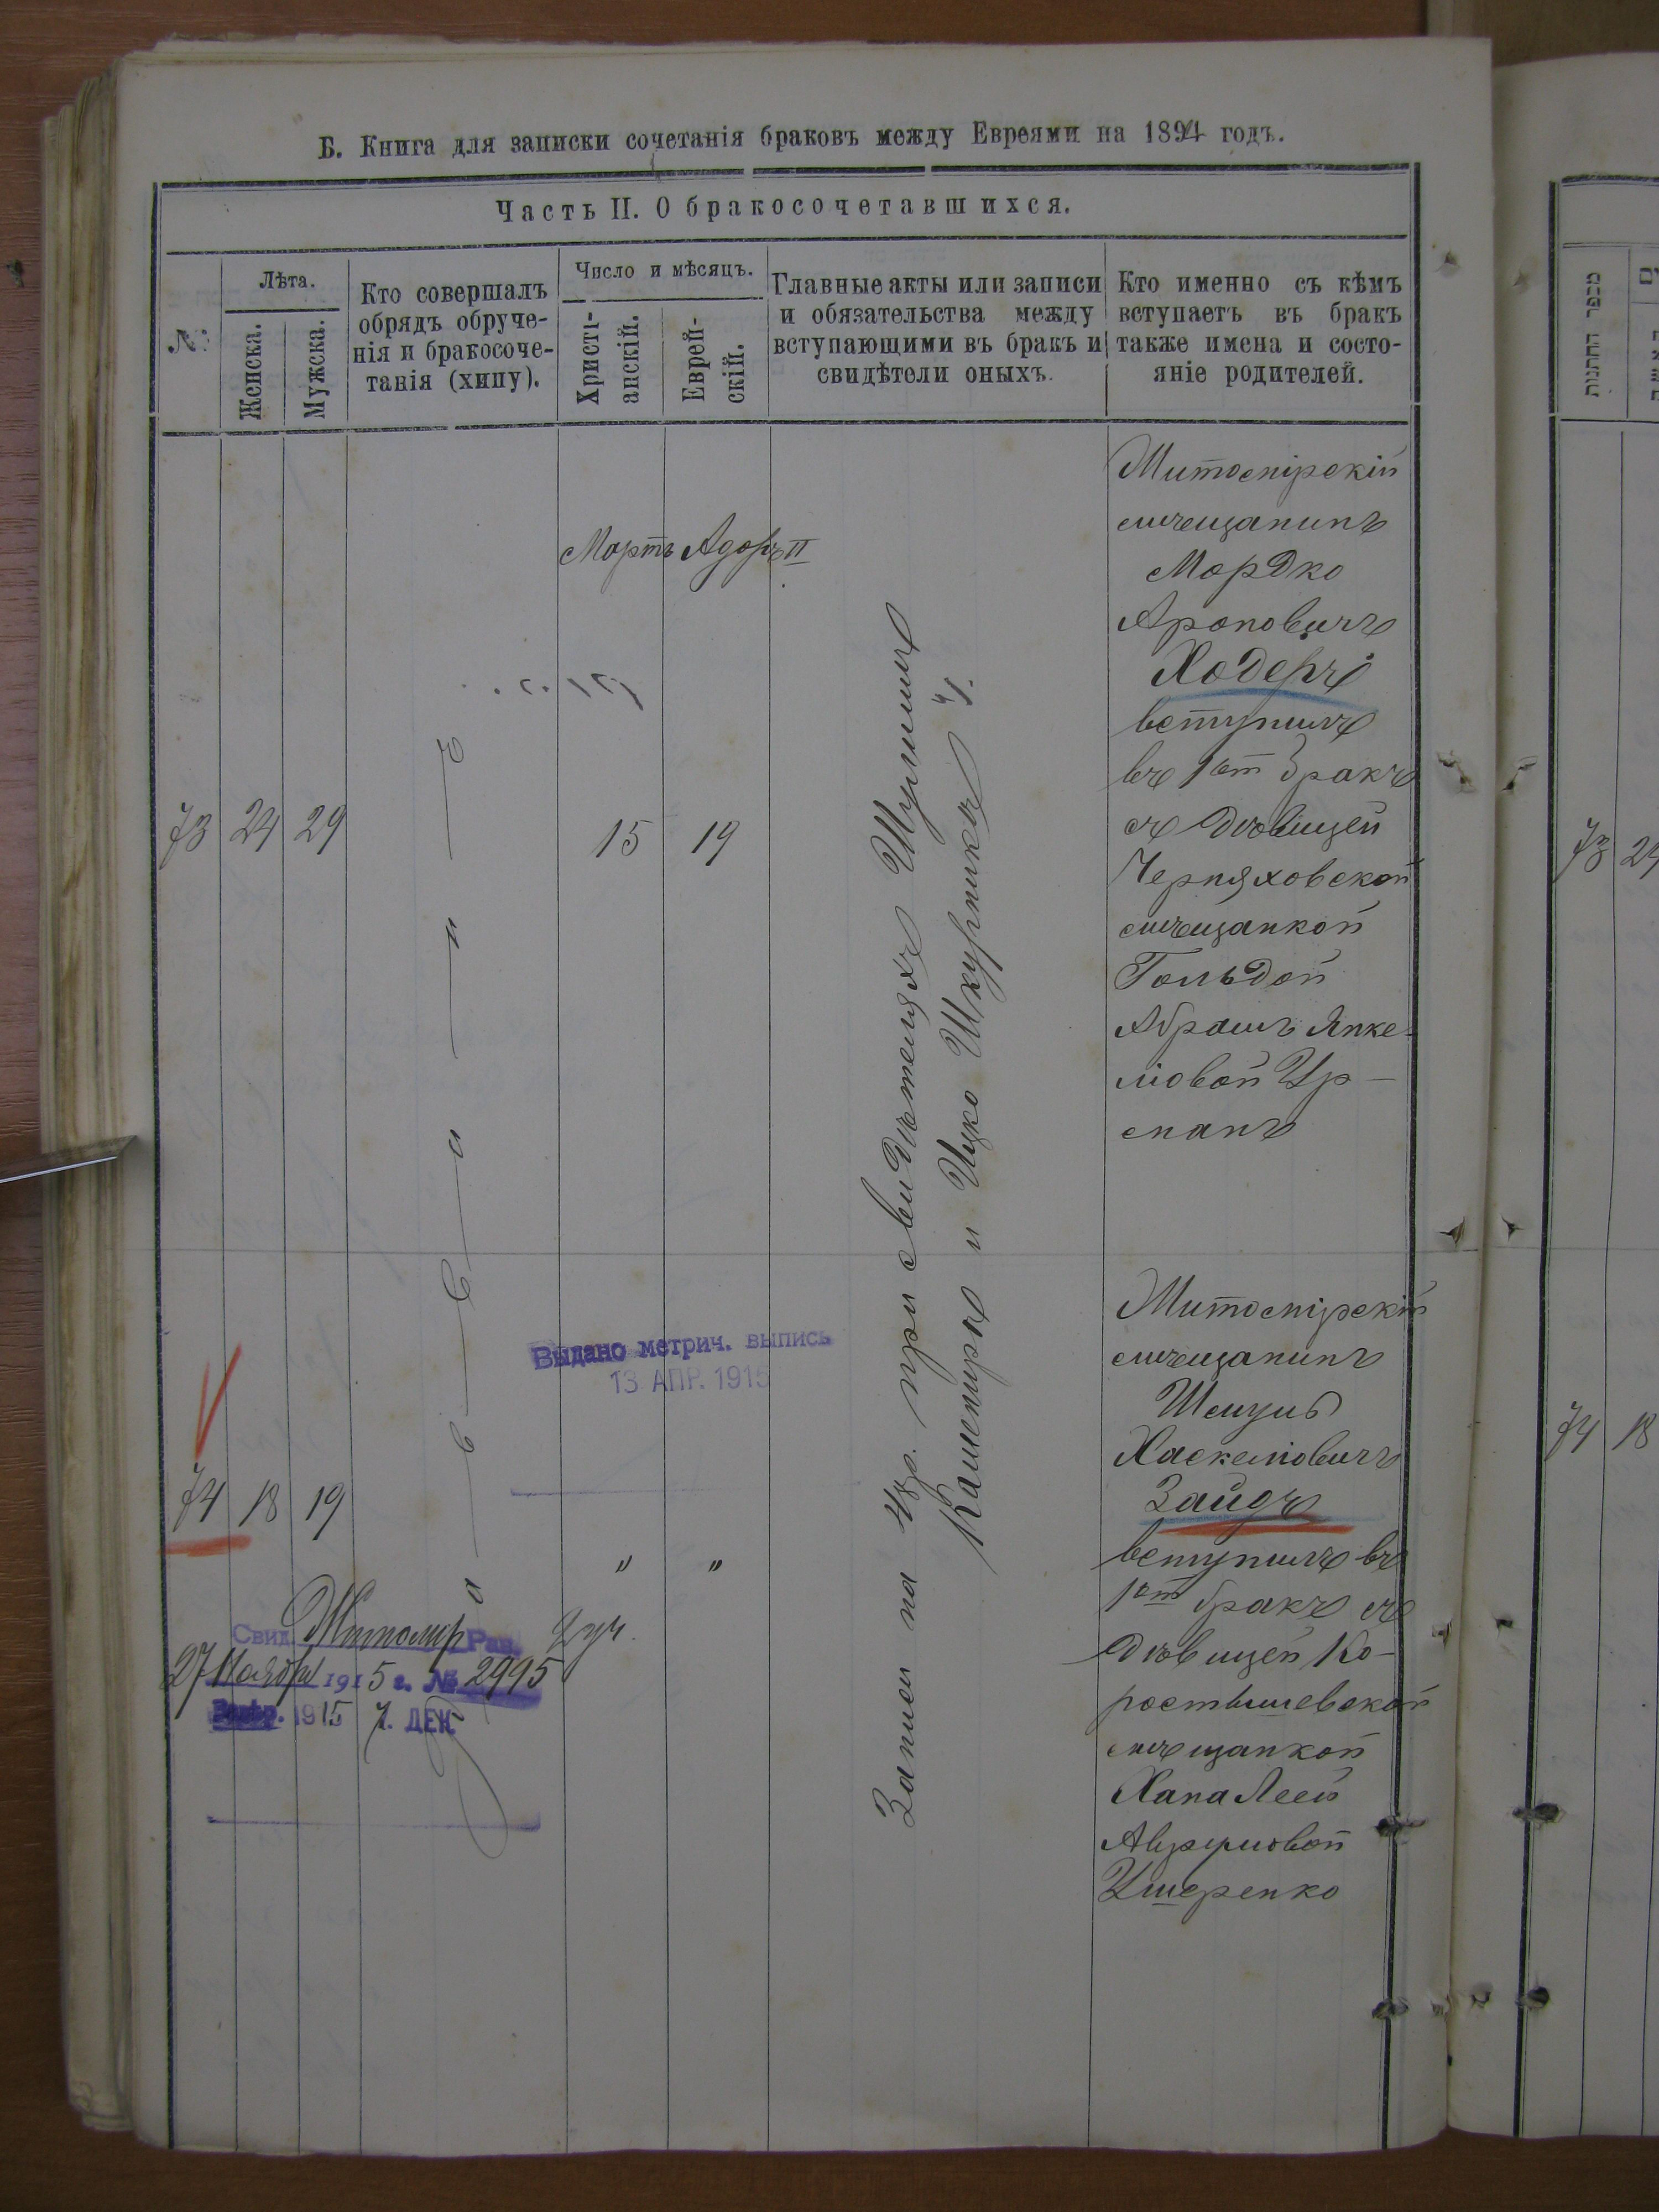 Б. Книга для записки сочетанія браковъ между Евреями на 1894 годъ.
Часть II. О бракосочетавшихся.
№
Лѣта.
Женска.
Мужска.
Кто совершалъ
обрядъ обруче-
нія и бракосоче-
танія (хипу).
Число и мѣсяцъ.
Христі-
анскій.
Еврей-
скій.
Главные акты или записи
и обязательства между
вступающими въ бракъ и
свидѣтели оныхъ.
Кто именно съ кѣмъ
вступаетъ въ бракъ
также имена и состо-
яніе родителей.
Мартъ Адоръ II
73 24 29
15 19
Раввинъ
Записи на 48 р. при свидѣтеляхъ Шулимѣ
и Ицко Шкурникъ
Житомірскій
мѣщанинъ
Мордко
Ароновичъ
Ходеръ
вступилъ
въ 1ый бракъ
съ дѣвицей
Черняховской
мѣщанкой
Гольдой
Абрамъ Янке-
ліовой Ур-
манъ
74 18 19
" "
Житомірскій
мѣщанинъ
Шмуль
Хаскеліовичъ
Зайдъ
вступилъ въ
1ый бракъ съ
дѣвицей Ко-
ростышевской
мѣщанкой
Хана Леей
Аврумовой
Ушеренко
Выдано метрич. выпись
13 АПР. 1915
Свид. Житомир Рав.
27 Ноября 1915 г. № 2995
1915 7. ДЕК.
מספר החתונות
73 24
74 18